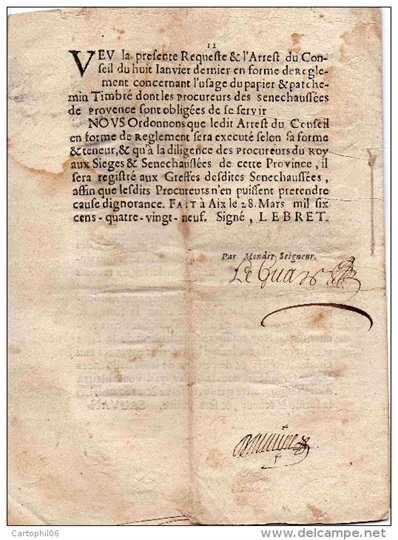 12
VEV la presente Requeste & l'Arrest du Con-
seil du huit Ianvier dernier en forme de Regle-
ment concernant l'usage du papier & patche-
min Timbré dont les Procureurs des Senechaussées
de Provence sont obligées de se servir
NOVS Ordonnons que ledit Arrest du Conseil
en forme de Reglement sera executé selon sa forme
& teneur, & qu'à la diligence des Procureurs du Roy
aux Sieges & Senechaussées de cette Province, il
sera registré aux Greffes desdites Senechaussées,
affin que lesdits Procureurs n'en puissent prerendre
cause dignotance. FAIT à Aix le 28. Mars mil six
cens-quatre-vingt-neuf. Signé, LEBRET.
Par Mondit Seigneur.
Cartophil06
www.delcampe.net